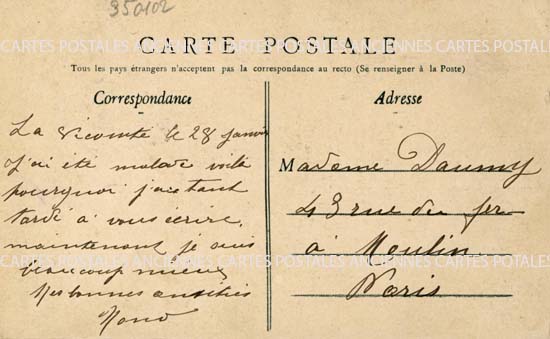 350102
CARTE POSTALE
CARTES POSTALES ANCIENNES CARTES POSTALES ANCIENNES CARTES POSTALES
Tous les pays étrangers n'acceptent pas la correspondance au recto (Se renseigner à la Poste)
Correspondance
La Vicomté le 28 Janvier
J'ai été malade voilà
pourquoi j'ai tant
tardé à vous écrire,
maintenant je suis
beaucoup mieux
Mes bonnes amitiés
Adresse
Madame Daumy
43 rue du fer
à Moulin
Paris
CARTES POSTALES ANCIENNES CARTES POSTALES ANCIENNES CARTES POSTALES